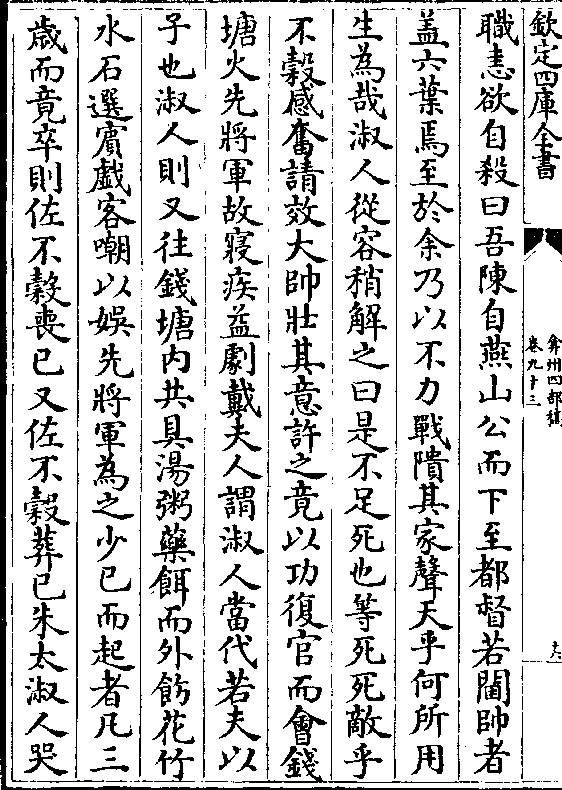 欽定四庫全書
弇州四部稿
卷九十三
職恚欲自殺曰吾陳自燕山公而下至都督若閫帥者
盖六葉焉至於余乃以不力戰隤其家聲天乎何所用
生為哉淑人從容稍解之曰是不足死也等死死敵乎
不穀感奮請效大帥壯其意許之竟以功復官而會錢
塘火先將軍故寢疾益劇戴夫人謂淑人當代若夫以
子也淑人則又往錢塘内共具湯粥藥餌而外飭花竹
水石選賓戲客嘲以娛先將軍為之少已而起者凡三
歳而竟卒則佐不穀喪已又佐不穀葬已朱太淑人哭